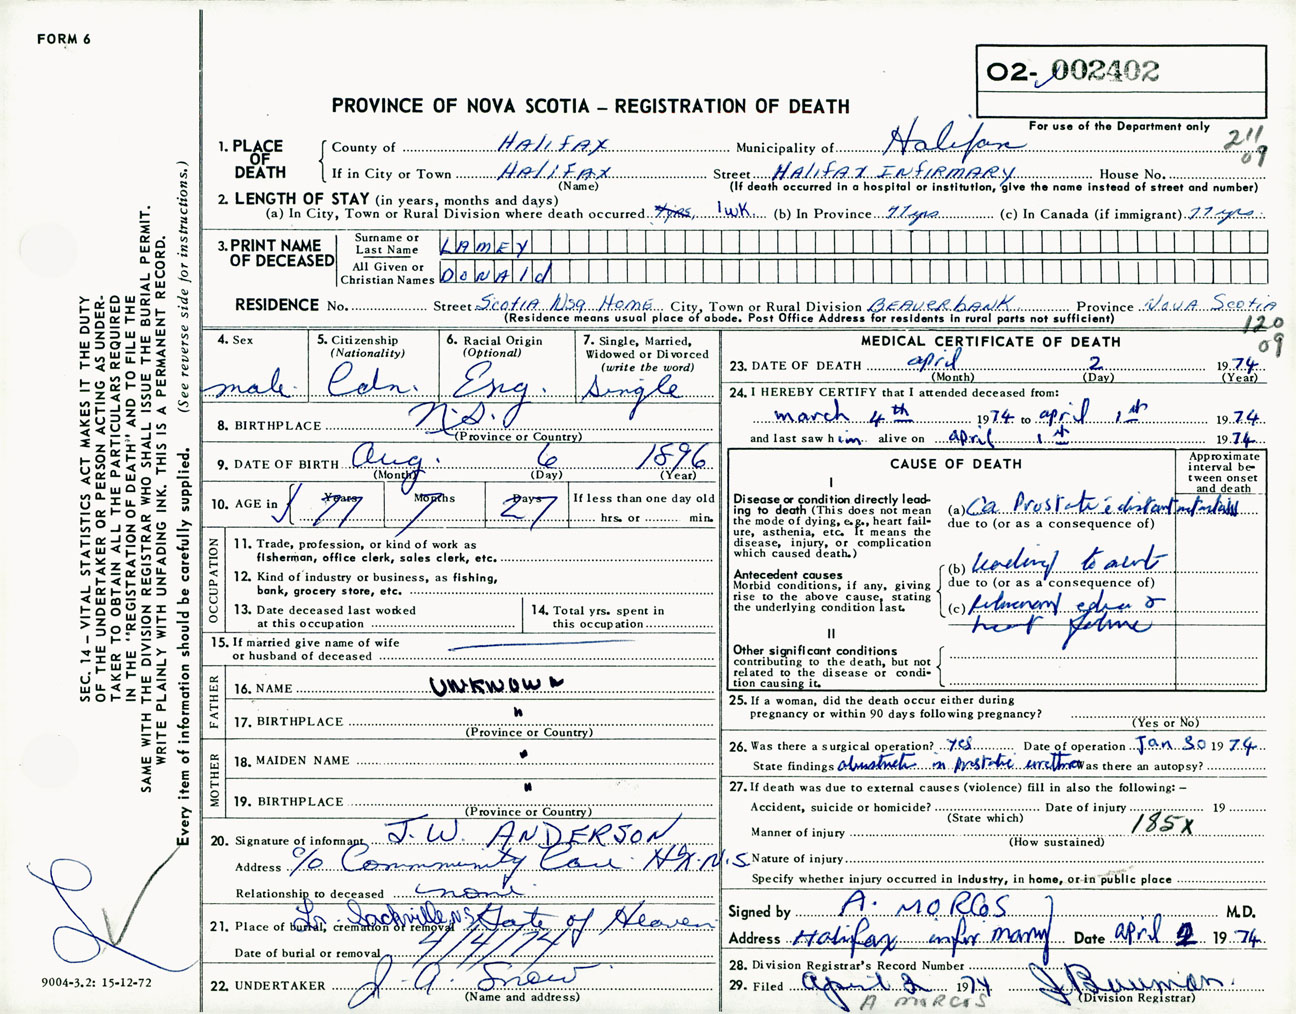 FORM 6
02- 002402
PROVINCE OF NOVA SCOTIA – REGISTRATION OF DEATH
For use of the Department only
211
09
1. PLACE OF DEATH
County of HALIFAX Municipality of Halifax
If in City or Town HALIFAX Street HALIFAX INFIRMARY House No.
(Name) (If death occurred in a hospital or institution, give the name instead of street and number)
2. LENGTH OF STAY (in years, months and days)
(a) In City, Town or Rural Division where death occurred 1 wk. (b) In Province 77 yrs (c) In Canada (if immigrant) 77 yrs.
3. PRINT NAME OF DECEASED
Surname or Last Name LAMEY
All Given or Christian Names DONALD
RESIDENCE No. Street SCOTIA NSG HOME City, Town or Rural Division BEAVERBANK Province NOVA SCOTIA
(Residence means usual place of abode. Post Office Address for residents in rural parts not sufficient)
120
09
4. Sex
male
5. Citizenship
(Nationality)
Cdn.
6. Racial Origin
(Optional)
Eng.
7. Single, Married,
Widowed or Divorced
(write the word)
Single
8. BIRTHPLACE N.S.
(Province or Country)
9. DATE OF BIRTH Aug. 6 1896
(Month) (Day) (Year)
10. AGE in Years Months Days If less than one day old
77 7 27 hrs. or min.
OCCUPATION
11. Trade, profession, or kind of work as
fisherman, office clerk, sales clerk, etc.
12. Kind of industry or business, as fishing,
bank, grocery store, etc.
13. Date deceased last worked
at this occupation
14. Total yrs. spent in
this occupation
15. If married give name of wife
or husband of deceased
FATHER
16. NAME UNKNOWN
17. BIRTHPLACE "
(Province or Country)
MOTHER
18. MAIDEN NAME "
19. BIRTHPLACE "
(Province or Country)
20. Signature of informant J. W. ANDERSON
Address c/o Community Care Hfx. N.S.
Relationship to deceased none
21. Place of burial, cremation or removal Lr. Sackville NS Gate of Heaven
Date of burial or removal 4/4/74
22. UNDERTAKER J. A. Snow
(Name and address)
MEDICAL CERTIFICATE OF DEATH
23. DATE OF DEATH april 2 1974
(Month) (Day) (Year)
24. I HEREBY CERTIFY that I attended deceased from:
march 4th 1974 to april 1st 1974
and last saw him alive on april 1st 1974
CAUSE OF DEATH
Approximate
interval be-
tween onset
and death
I
Disease or condition directly lead-
ing to death (This does not mean
the mode of dying, e.g., heart fail-
ure, asthenia, etc. It means the
disease, injury, or complication
which caused death.)
(a) Ca Prostate c distant
due to (or as a consequence of)
Antecedent causes
Morbid conditions, if any, giving
rise to the above cause, stating
the underlying condition last.
(b) leading to
due to (or as a consequence of)
(c) pulmonary
heart failure
II
Other significant conditions
contributing to the death, but not
related to the disease or condi-
tion causing it.
25. If a woman, did the death occur either during
pregnancy or within 90 days following pregnancy?
(Yes or No)
26. Was there a surgical operation? yes Date of operation Jan 30 1974
State findings in prostatic urethra Was there an autopsy?
27. If death was due to external causes (violence) fill in also the following: –
Accident, suicide or homicide? Date of injury 19
(State which)
185X
Manner of injury
(How sustained)
Nature of injury
Specify whether injury occurred in Industry, in home, or in public place
Signed by A. MORCOS M.D.
Address Halifax infirmary Date april 2 1974
28. Division Registrar's Record Number
29. Filed April 2 1974 J Bauman
(Division Registrar)
A MORCOS
SEC. 14 – VITAL STATISTICS ACT MAKES IT THE DUTY
OF THE UNDERTAKER OR PERSON ACTING AS UNDER-
TAKER TO OBTAIN ALL THE PARTICULARS REQUIRED
IN THE "REGISTRATION OF DEATH" AND TO FILE THE
SAME WITH THE DIVISION REGISTRAR WHO SHALL ISSUE THE BURIAL PERMIT.
WRITE PLAINLY WITH UNFADING INK. THIS IS A PERMANENT RECORD.
Every item of information should be carefully supplied. (See reverse side for instructions.)
9004-3.2: 15-12-72